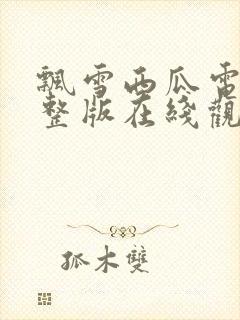 飄雪西瓜電
整版在綫觀
孤木雙